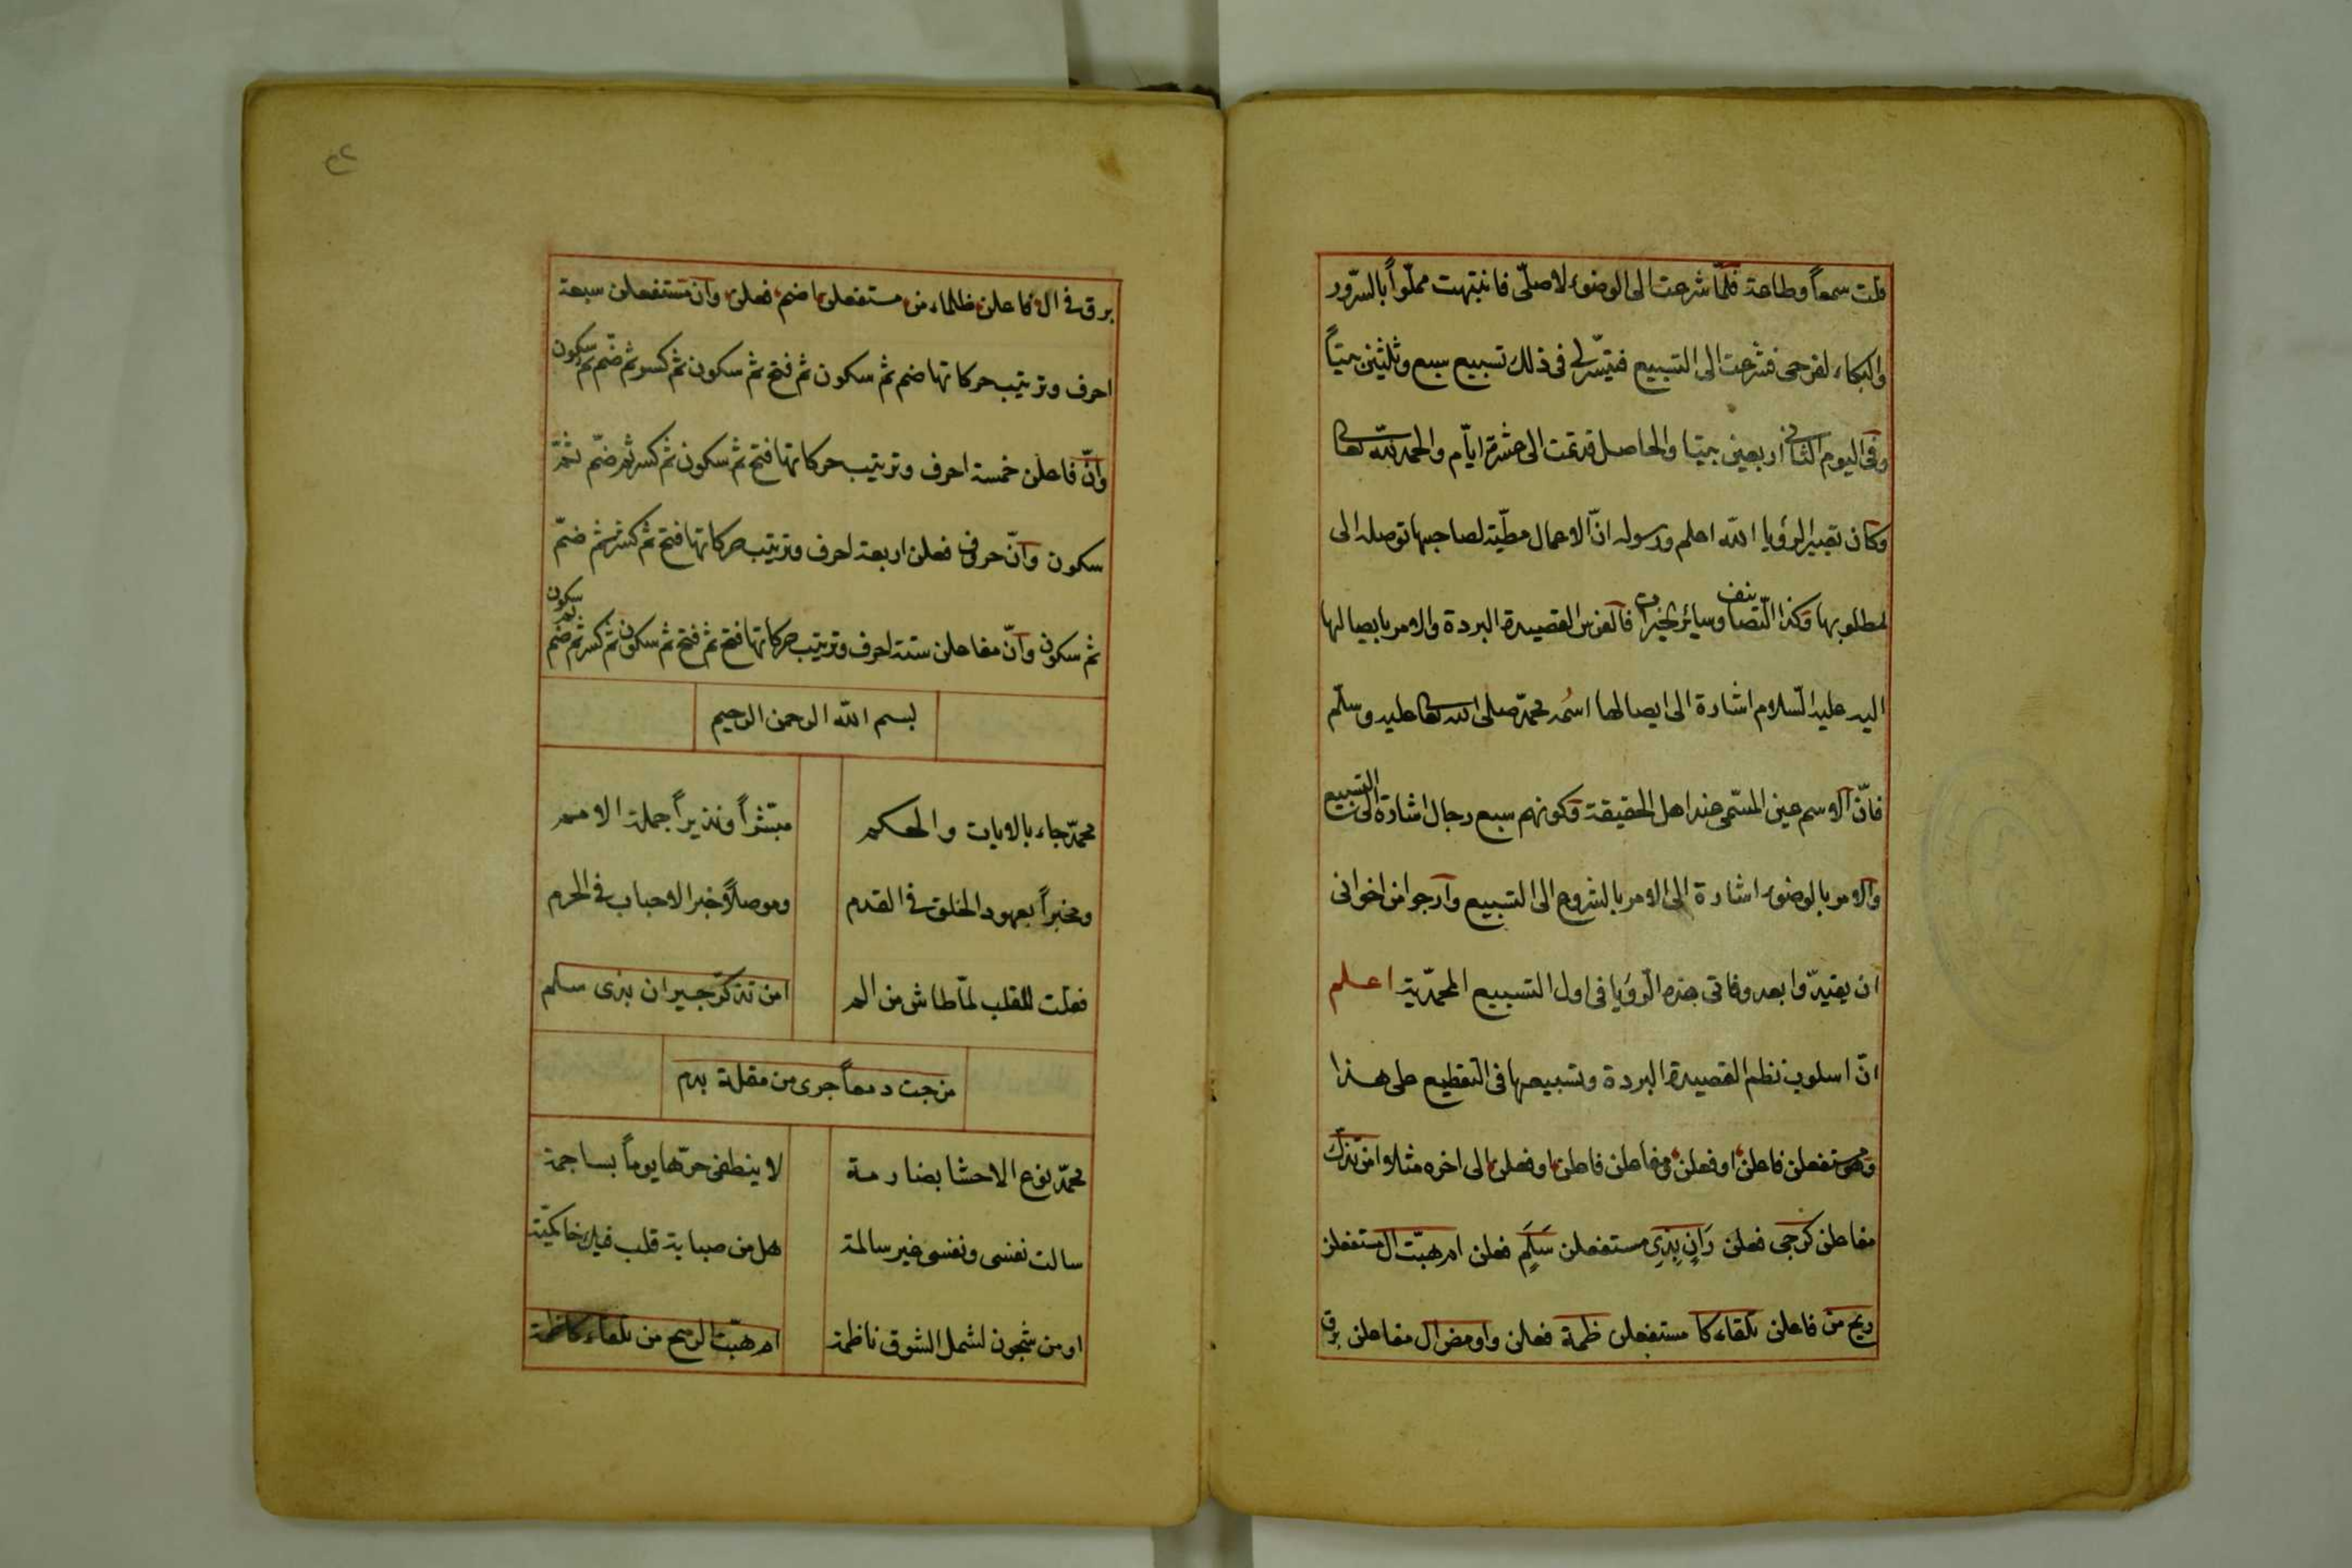 قلت سمعاً وطاعة فلمّا شرعت الى الوضوء لاصلّى فانتبهت مملّواً بالسّرور
والبكاء لفرحى فشرعت الى التسبيع فتيسّر لى فى ذلك تسبيع سبع وثلثين بيتاً
وفى اليوم الثانى اربعين بيتا والحاصل قد تمت الى عشرة ايّام والحمد لله تعالى
وكان تعبير الرؤيا الله اعلم ورسوله انّ الاعمال مطيّة لصاحبها توصله الى
لمطلوبها وكذا التصانيف وسائر الخيرات فالفرس القصيدة البردة والامر بايصالها
اليه عليه السّلام اشارة الى ايصالها اسمه محمّد صلى الله تعالى عليه وسلّم
فانّ الاسم عين المسمّى عند اهل الحقيقة وكونهم سبع رجال اشارة الى التسبيع
والامر بالوضوء اشارة الى الامر بالشروع الى التسبيع وارجوا من اخوانى
ان يقيدّوا بعد وفاتى هذه الرّؤيا فى اول التسبيع المحمّدية اعلم
انّ اسلوب نظم القصيدة البردة وتسبيعها فى التقطيع على هذا
وهو مستفعلن فاعلن او فعلن مفاعلن فاعلن او فعلن الى اخره مثلا امن تذك
مفاعلن كرجى فعلن رَانٍ بِذِى مستفعلن سَلَمٍ فعلن ام هبّت ال مستفعلن
ريح من فاعلن تلقاء كا مستفعلن ظمة فعلن واومض ال مفاعلن برق
برق فى ال فاعلن ظلماء من مستفعلن اضم فعلن وان مستفعلن سبعة
احرف وترتيب حركاتها ضم ثم سكون ثم فتح ثم سكون ثم كسر ثم ضم ثم سكون
وانّ فاعلن خمسة احرف وترتيب حركاتها فتح ثم سكون ثم كسر ثم ضمّ ثمّ
سكون وانّ حرفى فعلن اربعة احرف وترتيب حركاتها فتح ثم كسر ثم ضمّ
ثم سكون وانّ مفاعلن ستة احرف وترتيب حركاتها فتح ثم فتح ثم سكون ثم كسر ثم ضم ثم سكون
بسم الله الرحمن الرحيم
محمّد جاء بالايات والحكم مبشراً ونذيراً جملة الامم
ومخبراً بعهود الخلق فى القدم وموصلاً خبر الاحباب فى الحرم
فقلت للقلب لمّا طاش من الم امن تذكّر جيران بذى سلم
مزجت دمعاً جرى من مقلة بدم
محمّد نوع الاحشا بضارمة لا ينطفى حرّها يوماً بساجمة
سالت نفسى ونفسى غير سالمة هل من صبابة قلب فيك
او من شجون لشمل الشوق ناظمة ام هبّت الريح من تلقاء كاظمة